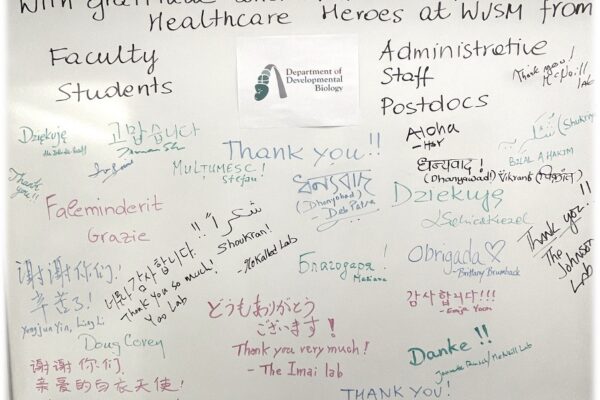 with gratitude
Healthcare Heroes at WUSM from
Faculty
Students
Department of
Developmental
Biology
Administrative
Staff
Postdocs
Thank you!
McNeill
Lab
Dziękuję
고맙습니다
Thank you!!
Aloha
شكرًا
(Shukriya)
BILAL A HAKIM
Thank
you!!
MULTUMESC!
Stefan
ধন্যবাদ
(Dhanyabad)
- Deb Patra
धन्यवाद!
(Dhanyawad!) Vikrant (विक्रांत)
Dziekuję
Faleminderit
Grazie
شكرا
Shoukran!
- Mokalled Lab
너무 감사합니다!!
Thank you so much!
Yoo Lab
Благодаря!
Mariana
Obrigada
- Brittany Brumback
Thank you!!
The
Johnson
Lab
谢谢你们!
辛苦了!
Yongjun Yin, Ling Li
Doug Covey
どうもありがとう
ございます!
Thank you very much!
- The Imai lab
감사합니다!!!
- Eunju Yoon
Danke!!
McNeill Lab
谢谢你们
亲爱的白衣天使!
THANK YOU!